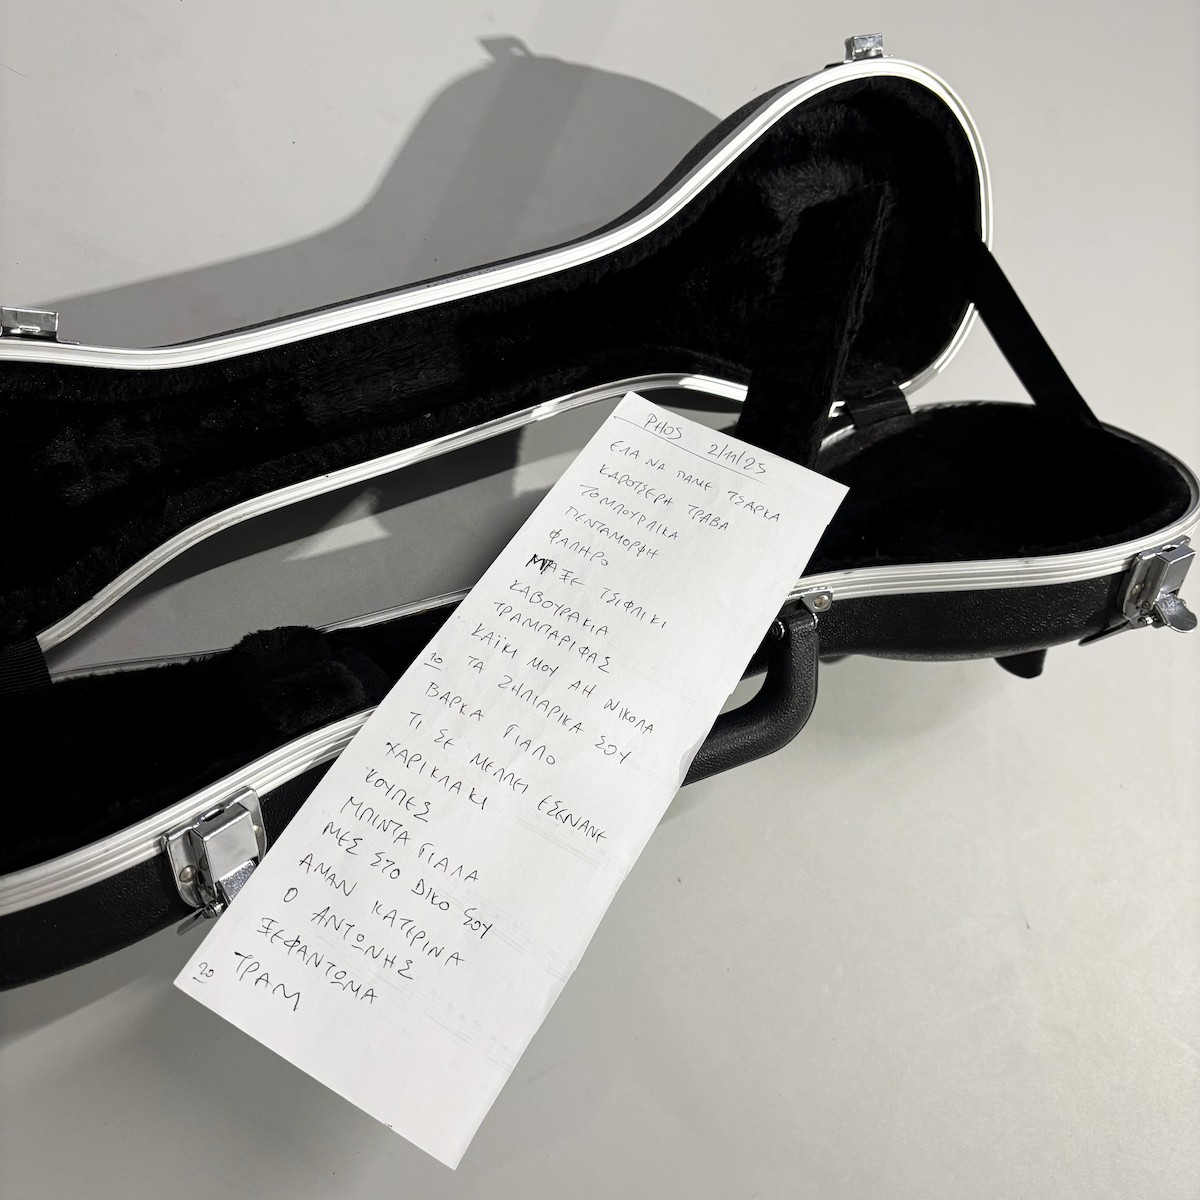 PHOS 2/11/25
ΕΛΑ ΝΑ ΠΑΜΕ ΤΣΑΡΚΑ
ΚΑΡΟΤΣΕΡΗ ΤΡΑΒΑ
ΤΟΜΠΟΥΡΛΙΚΑ
ΠΕΝΤΑΜΟΡΦΗ
ΦΑΛΗΡΟ
ΜΑΞΕ ΤΣΙΦΛΙΚΙ
ΚΑΒΟΥΡΑΚΙΑ
ΤΡΑΜΠΑΡΙΦΑΣ
ΚΑΪΚΙ ΜΟΥ ΑΗ ΝΙΚΟΛΑ
10 ΤΑ ΖΗΛΙΑΡΙΚΑ ΣΟΥ
ΒΑΡΚΑ ΓΙΑΛΟ
ΤΙ ΣΕ ΜΕΛΛΕΙ ΕΣΕΝΑΝΕ
ΧΑΡΙΚΛΑΚΙ
ΚΟΥΠΕΣ
ΜΠΙΝΤΑ ΓΙΑΛΑ
ΜΕΣ ΣΤΟ ΔΙΚΟ ΣΟΥ
ΑΜΑΝ ΚΑΤΕΡΙΝΑ
Ο ΑΝΤΩΝΗΣ
ΞΕΦΑΝΤΩΜΑ
20 ΤΡΑΜ